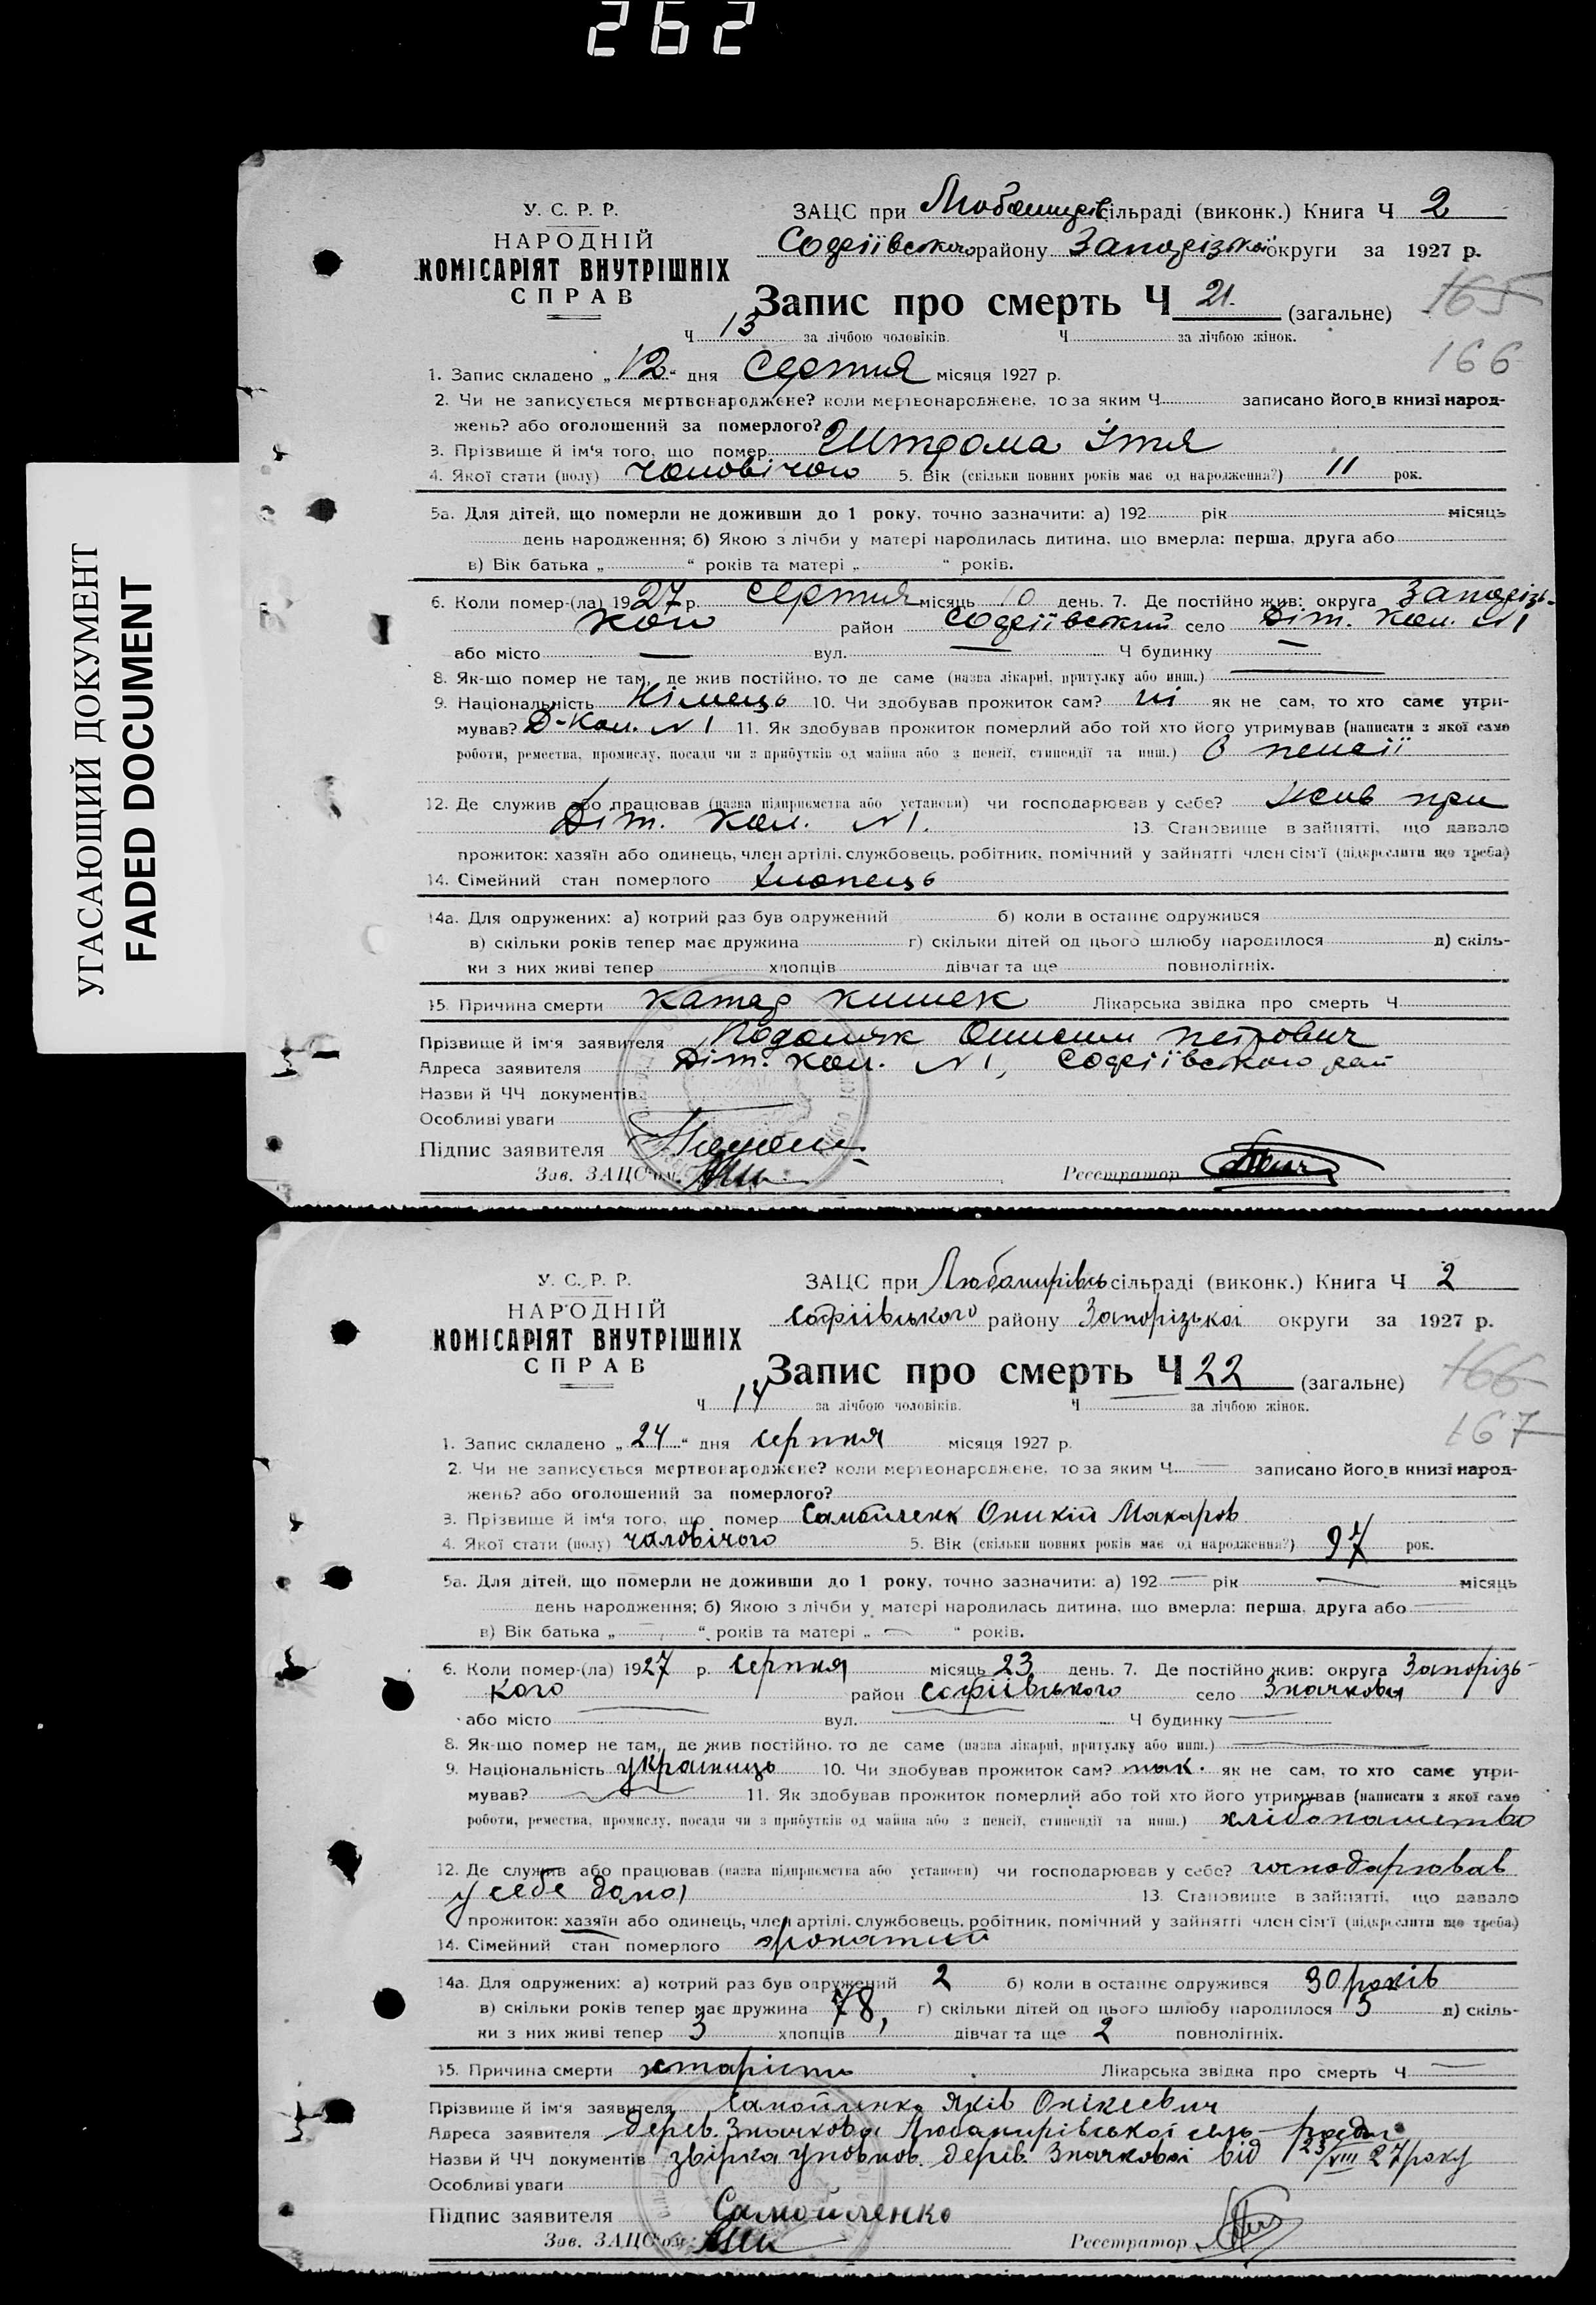 262
УГАСАЮЩИЙ ДОКУМЕНТ
FADED DOCUMENT
У. С. Р. Р.
НАРОДНІЙ
КОМІСАРІЯТ ВНУТРІШНІХ
СПРАВ
ЗАЦС при сільраді (виконк.) Книга Ч 2
Софіївського району Запорізької округи за 1927 р.
Запис про смерть Ч 21. (загальне)
165
166
Ч 13 за лічбою чоловіків. Ч за лічбою жінок.
1. Запис складено „12“ дня Серпня місяця 1927 р.
2. Чи не записується мертвонароджене? коли мертвонароджене, то за яким Ч записано його в книзі народ-
жень? або оголошений за померлого?
3. Прізвище й ім‘я того, що помер
4. Якої стати (полу) чоловічого 5. Вік (скільки повних років має од народження?) 11 рок.
5а. Для дітей, що померли не доживши до 1 року, точно зазначити: а) 192 рік місяць
день народження; б) Якою з лічби у матері народилась дитина, що вмерла: перша, друга або
в) Вік батька „ “ років та матері „ “ років.
6. Коли помер-(ла) 1927 р. Серпня місяць 10 день. 7. Де постійно жив: округа Запорізь-
кого район Софіївський село Діт. Кол. №1
або місто — вул. — Ч будинку —
8. Як-що помер не там, де жив постійно, то де саме (назва лікарні, притулку або инш.) —
9. Національність Німець 10. Чи здобував прожиток сам? ні як не сам, то хто саме утри-
мував? Д-Кол. №1 11. Як здобував прожиток померлий або той хто його утримував (написати з якої саме
роботи, ремества, промислу, посади чи з прибутків од майна або з пенсії, стипендії та инш.) З пенсії
12. Де служив або працював (назва підприємства або установи) чи господарював у себе? жив при
Діт. Кол. №1. 13. Становище в зайнятті, що давало
прожиток: хазяїн або одинець, член артілі, службовець, робітник, помічний у зайнятті член сім‘ї (підкреслити що треба)
14. Сімейний стан померлого хлопець
14а. Для одружених: а) котрий раз був одружений б) коли в останнє одружився
в) скільки років тепер має дружина г) скільки дітей од цього шлюбу народилося д) скіль-
ки з них живі тепер хлопців дівчат та ще повнолітніх.
15. Причина смерти катар кишек Лікарська звідка про смерть Ч
Прізвище й ім‘я заявителя Подоляк Онисим петрович
Адреса заявителя Діт. Кол. №1, Софіївського рай
Назви й ЧЧ документів
Особливі уваги
Підпис заявителя
Зав. ЗАЦС‘ом Реєстратор
У. С. Р. Р.
НАРОДНІЙ
КОМІСАРІЯТ ВНУТРІШНІХ
СПРАВ
ЗАЦС при Любамирівсь сільраді (виконк.) Книга Ч 2
софіівського району Запорізькоі округи за 1927 р.
Запис про смерть Ч 22 (загальне)
166
167
Ч 14 за лічбою чоловіків. Ч — за лічбою жінок.
1. Запис складено „24“ дня серпня місяця 1927 р.
2. Чи не записується мертвонароджене? коли мертвонароджене, то за яким Ч — записано його в книзі народ-
жень? або оголошений за померлого?
3. Прізвище й ім‘я того, що помер Самойленк Оникій Макаров
4. Якої стати (полу) чаловічого 5. Вік (скільки повних років має од народження?) 97 рок.
5а. Для дітей, що померли не доживши до 1 року, точно зазначити: а) 192 — рік — місяць
день народження; б) Якою з лічби у матері народилась дитина, що вмерла: перша, друга або —
в) Вік батька „ — “ років та матері „ — “ років.
6. Коли помер-(ла) 1927 р. серпня місяць 23 день. 7. Де постійно жив: округа Запорізь-
кого район софіівського село Значкова
або місто — вул. — Ч будинку —
8. Як-що помер не там, де жив постійно, то де саме (назва лікарні, притулку або инш.) —
9. Національність украіниць 10. Чи здобував прожиток сам? так. як не сам, то хто саме утри-
мував? — 11. Як здобував прожиток померлий або той хто його утримував (написати з якої саме
роботи, ремества, промислу, посади чи з прибутків од майна або з пенсії, стипендії та инш.) хлібопашество
12. Де служив або працював (назва підприємства або установи) чи господарював у себе? господарював
у себе дома 13. Становище в зайнятті, що давало
прожиток: хазяїн або одинець, член артілі, службовець, робітник, помічний у зайнятті член сім‘ї (підкреслити що треба)
14. Сімейний стан померлого жонатий
14а. Для одружених: а) котрий раз був одружений 2 б) коли в останнє одружився 30 років
в) скільки років тепер має дружина 78, г) скільки дітей од цього шлюбу народилося 5 д) скіль-
ки з них живі тепер 3 хлопців дівчат та ще 2 повнолітніх.
15. Причина смерти старість Лікарська звідка про смерть Ч —
Прізвище й ім‘я заявителя Самойленко Яків Онікіевич
Адреса заявителя дерев. Значкова Любамирівської сель-ради
Назви й ЧЧ документів звірка уповнов. дерев. Значковоі від 23/VIII 27 року
Особливі уваги
Підпис заявителя Самойленко
Зав. ЗАЦС‘ом Реєстратор